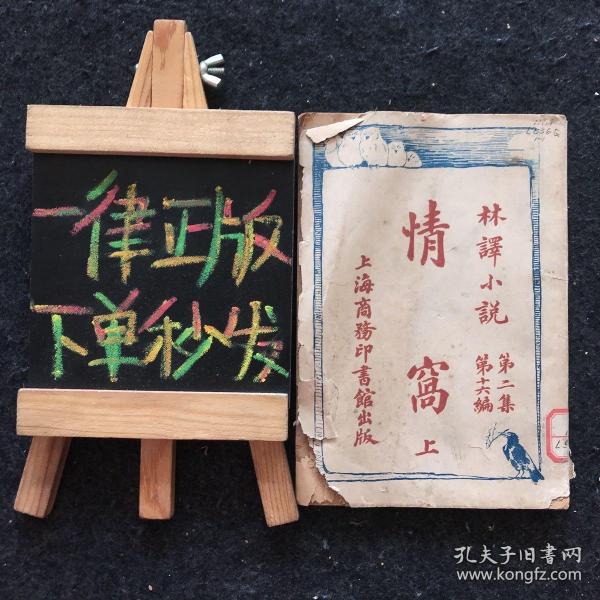 一律正版
下单秒发
林譯小説 第二集 第十六編
情窩 上
上海商務印書館出版
孔夫子旧书网
www.kongfz.com